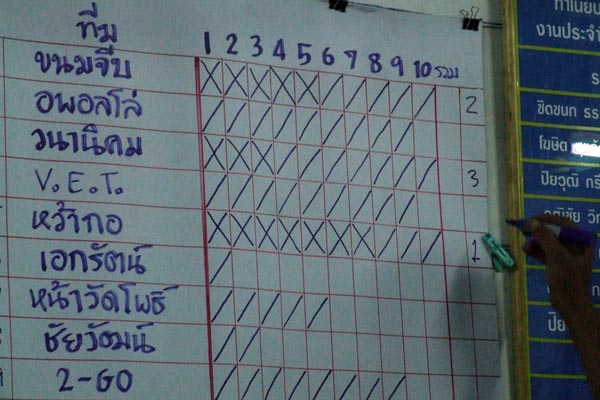 ทีม 1 2 3 4 5 6 7 8 9 10 รวม
ขนมจีบ 2
อพอลโล่
วนานิคม 3
V.E.T.
หว้ากอ 1
เอกรัตน์
หน้าวัดโพธิ์
ชัยวัฒน์
2-GO
ทำเนียบ
งานประจำ
ร
ชิดชนก
โฆษิต
ปิยวุฒิ